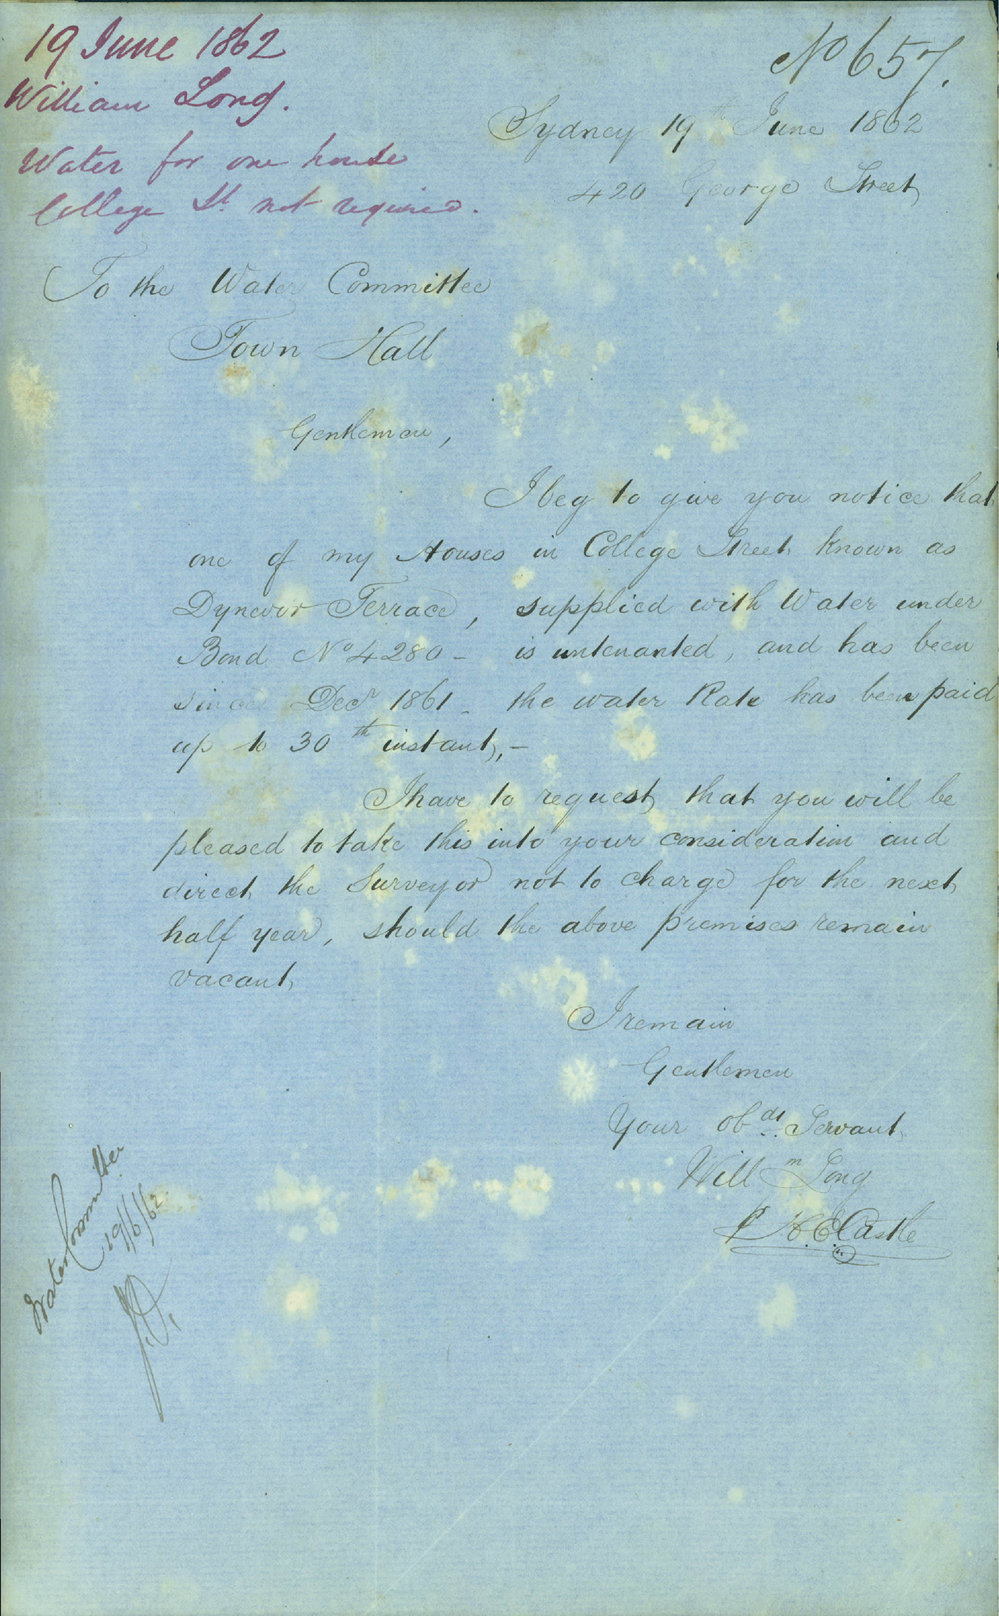 19 June 1862
William Long.
Water for one house
College St. not required.
No 657.
Sydney 19th June 1862
420 George Street
To the Water Committee
Town Hall
Gentlemen,
I beg to give you notice that
one of my Houses in College Street known as
Dynevor Terrace, supplied with Water under
Bond No 4280 - is untenanted, and has been
since Decr 1861 - the water Rate has been paid
up to 30th instant, -
I have to request that you will be
pleased to take this into your consideration and
direct the Surveyor not to charge for the next
half year, should the above premises remain
vacant
I remain
Gentlemen
Your obdt Servant
Willm Long
Castle
Water Committee
19/6/62